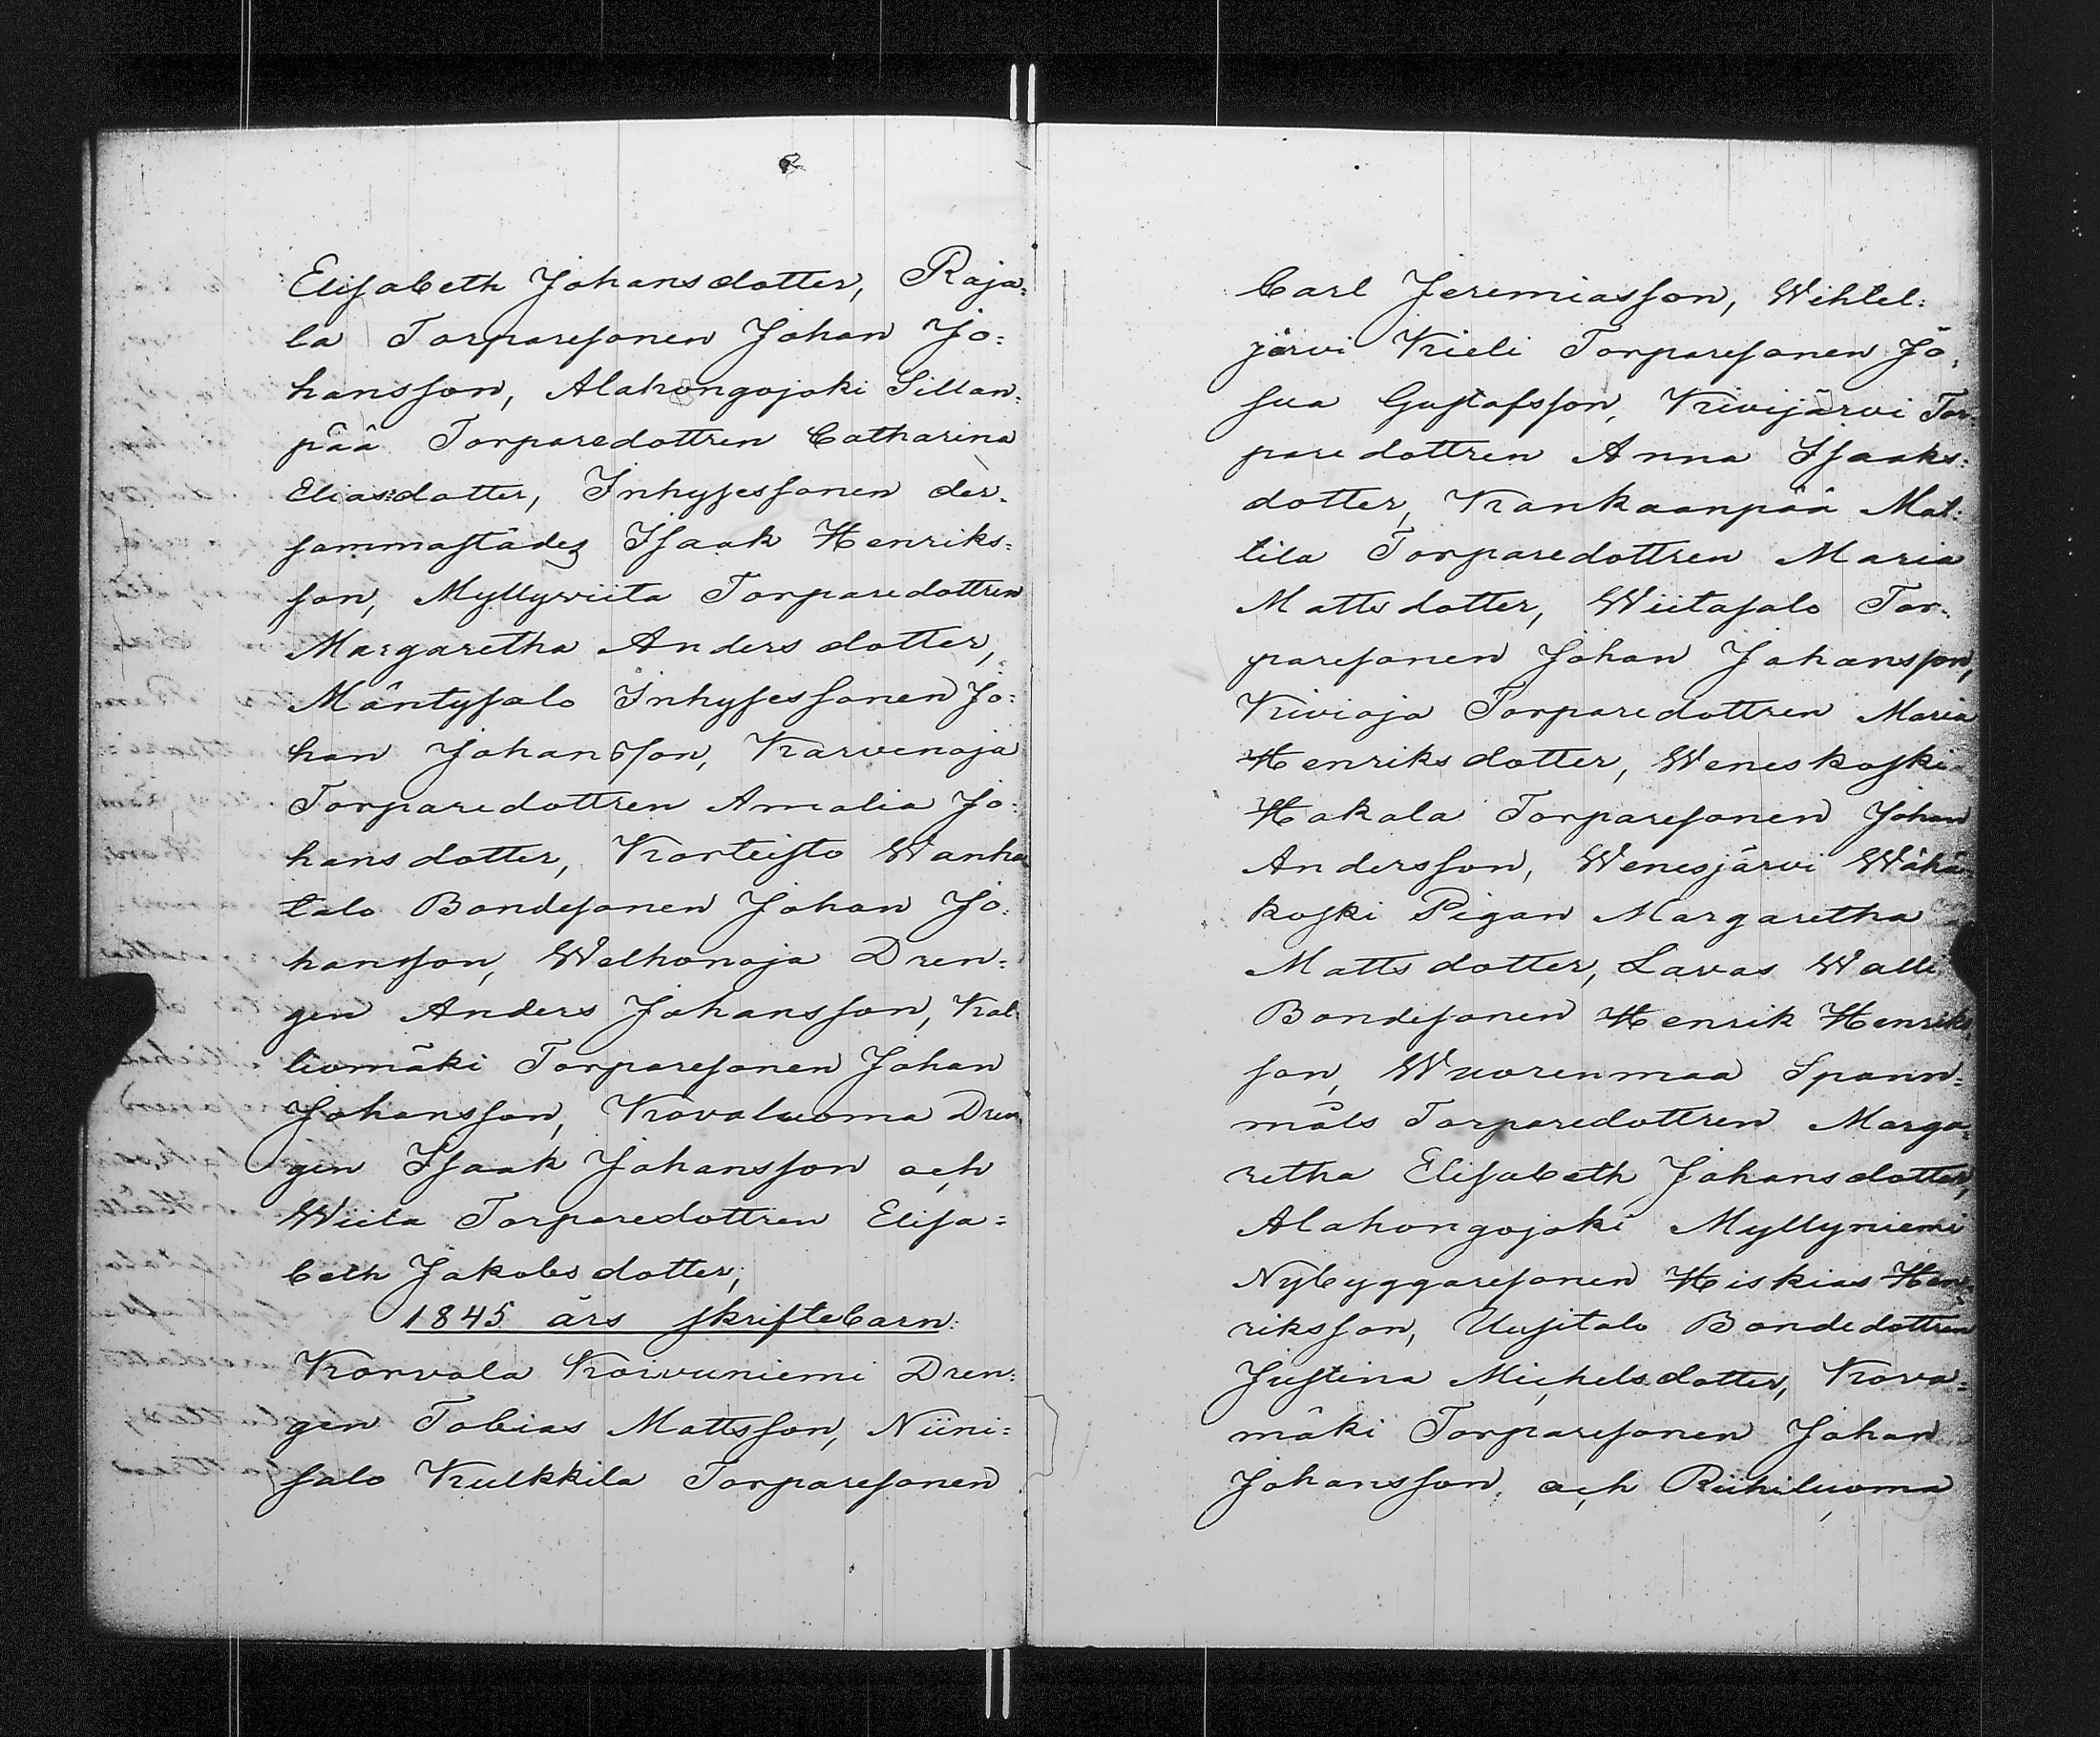 Elisabeth Johansdotter, Raja:
la Torparesonen Johan Jo:
hansson, Alahongojoki Sillan:
pää Torparedottren Catharina
Eliasdotter, Inhysessonen der:
sammastädes Isaak Henriks:
son, Myllyviita Torparedottren
Margaretha Andersdotter,
Mäntysalo Inhysessonen Jo:
han Johansson, Karvenoja
Torparedottren Amalia Jo:
hansdotter, Korteisto Wanha
talo Bondesonen Johan Jo:
hansson, Welhonoja Dren:
gen Anders Johansson, Kal
liomäki Torparesonen Johan
Johansson, Kovaluoma Dren
gen Isaak Johansson och
Wiita Torparedottren Elisa=
beth Jakobsdotter;
1845 års skriftebarn:
Korvala Koivuniemi Dren:
gen Tobias Mattsson, Niini=
salo Kulkkila Torparesonen
Carl Jeremiasson, Wihtel:
järvi Kieli Torparesonen Jo:
sua Gustafsson, Kivijärvi Tor:
paredottren Anna Isaaks:
dotter, Kankaanpää Mat:
tila Torparedottren Maria
Mattsdotter, Wiitasalo Tor:
paresonen Johan Johansson,
Kivioja Torparedottren Maria
Henriksdotter, Weneskoski
Hakala Torparesonen Johan
Andersson, Wenesjärvi Wähä
koski Pigan Margaretha
Mattsdotter, Lavas Walli
Bondesonen Henrik Henriks
son, Wuorenmaa Spann=
måls Torparedottren Marga:
retha Elisabeth Johansdotter,
Alahongojoki Myllyniemi
Nybyggaresonen Hiskias Hen:
riksson, Uusitalo Bondedottren
Justina Michelsdotter, Kova=
mäki Torparesonen Johan
Johansson, och Riihiluoma